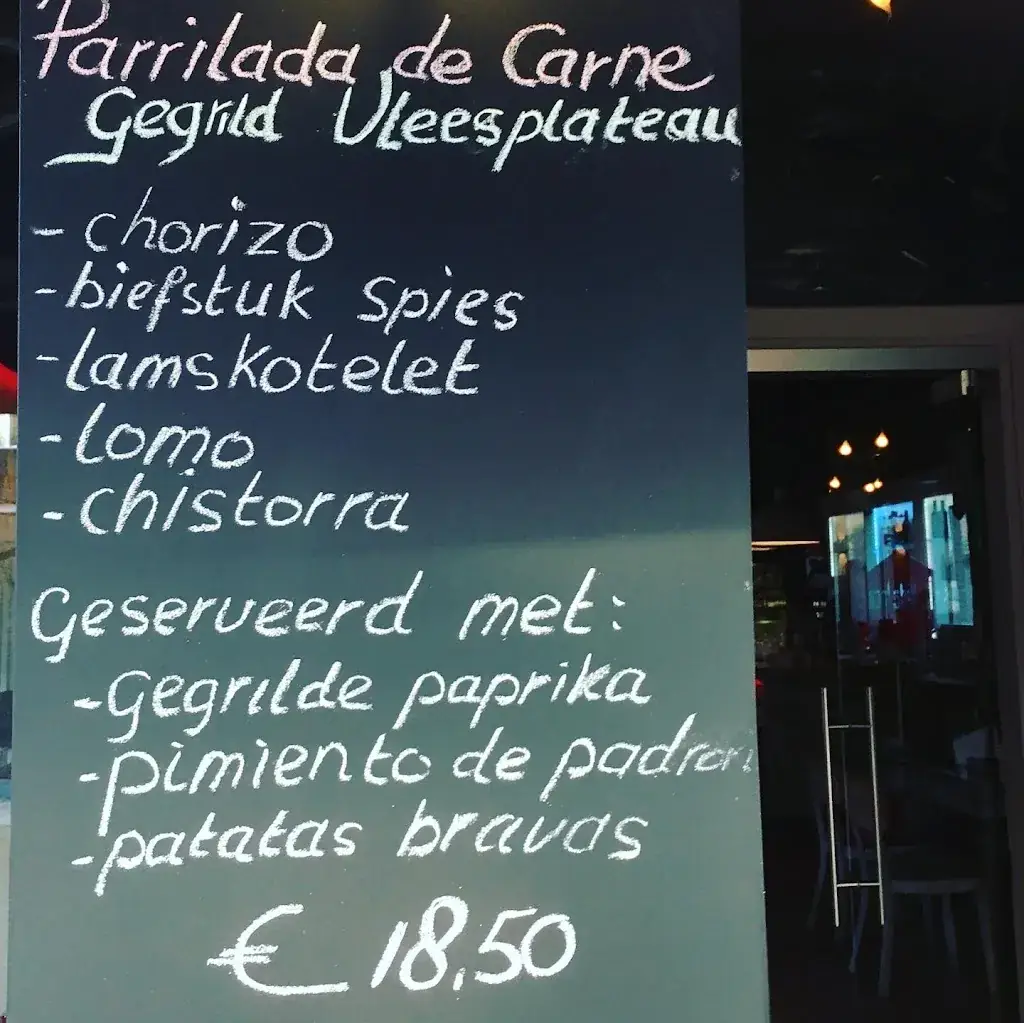 Parrilada de Carne
Gegrild Vleesplateau
- chorizo
- biefstuk spies
- lamskotelet
- lomo
- chistorra
Geserveerd met:
- gegrilde paprika
- pimiento de padron
- patatas bravas
€ 18,50